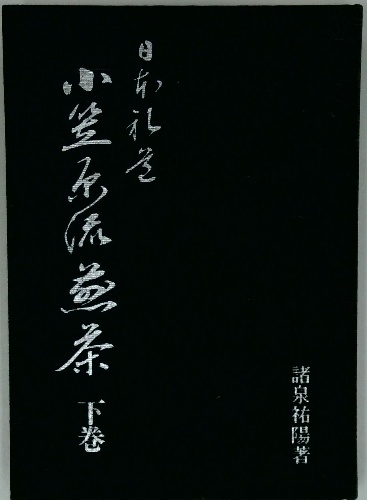 日本礼道
小笠原流煎茶 下巻
諸泉祐陽著